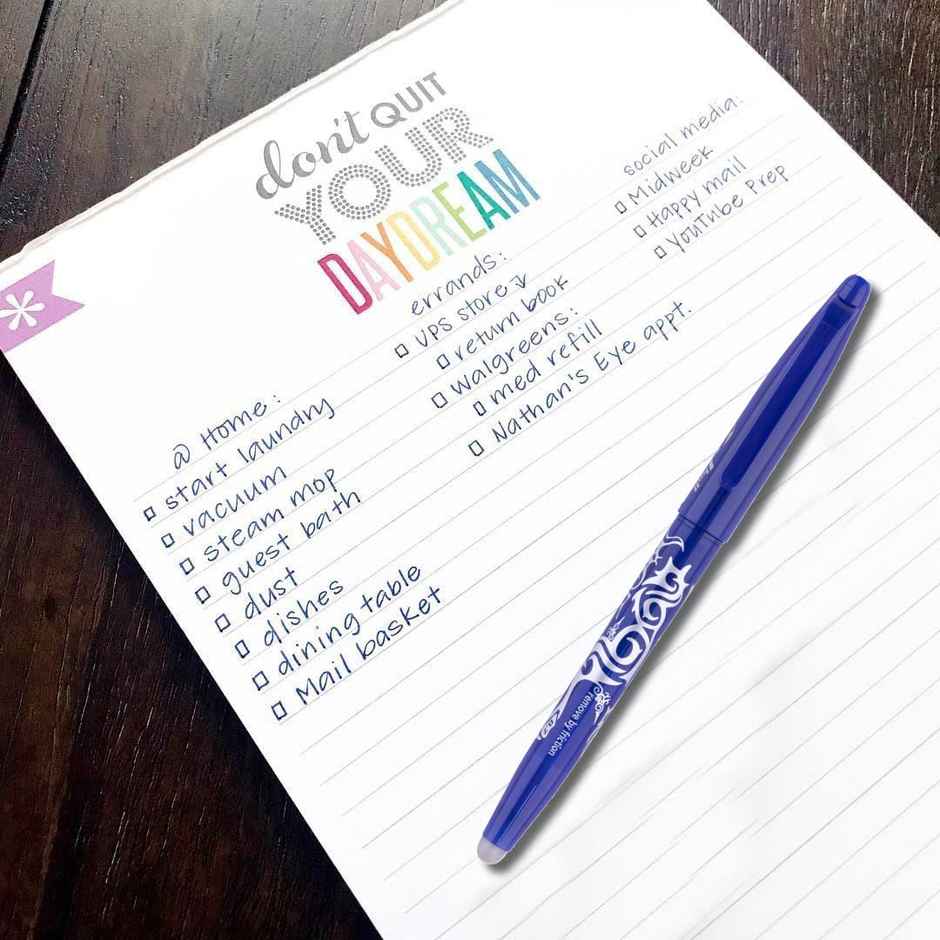 don't QUIT
YOUR
DAYDREAM
@ Home:
start laundry
vacuum
steam mop
guest bath
dust
dishes
dining table
Mail basket
errands:
UPS store
return book
Walgreens:
med refill
Nathan's Eye appt.
social media:
Midweek
Happy mail
YouTube Prep
remove by friction